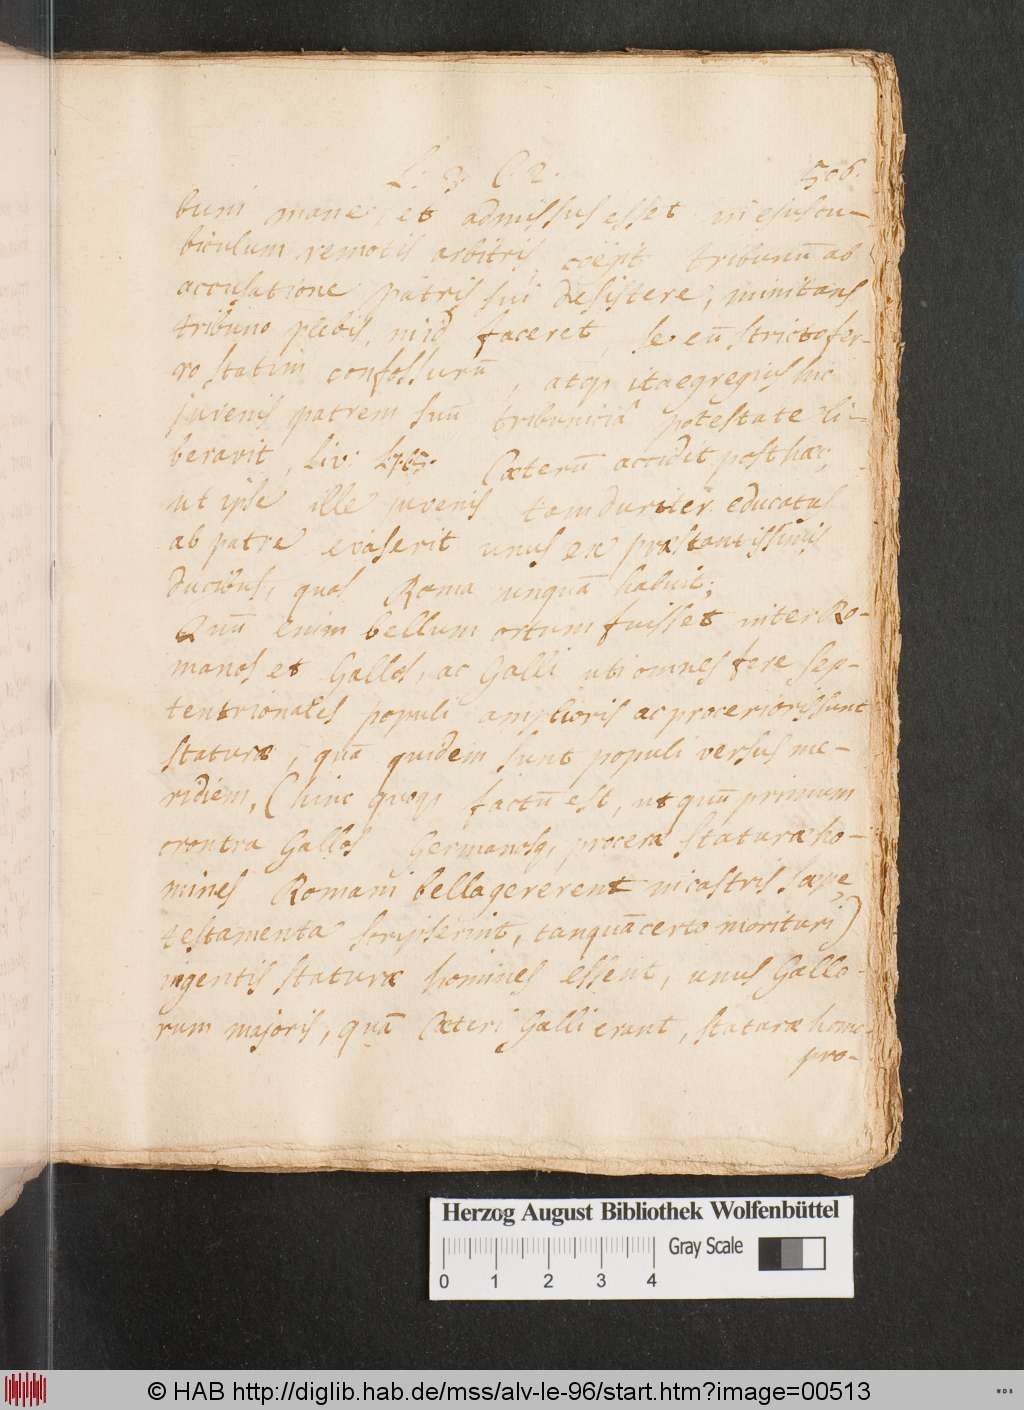 L. 3. C. 2. 506.
buni mane, et admissus esset in ejus cu-
biculum remotis arbitris, coëpit tribunū ab
accusatione patris sui desistere, minitans
tribuno plebis, ni id faceret, se eū stricto fer-
ro statim confossurū, atq; ita egregius hic
juvenis patrem suū tribuniciâ potestate li-
beravit, Liv: L. 7. c. 5. Cæterū accidit post hæc,
ut ipse ille juvenis tam duriter educatus
ab patre evaserit unus ex præstantissimis
ducibus, quos Roma unquā habuit;
Quū enim bellum ortum fuisset inter Ro-
manos et Gallos, ac Galli uti omnes fere sep-
tentrionales populi amplioris ac procerioris sunt
staturæ, quā quidem sunt populi versus me-
ridiem, (hinc quoq; factū est, ut quū primum
crontra Gallos Germanosq; proceræ staturæ ho-
mines Romani bella gererent in castris sæpe
testamenta scripserint, tanquā certo morituri)
ingentis staturæ homines essent, unus Gallo-
rum majoris, quā Cæteri Galli erant, staturæ homo
pro-
Herzog August Bibliothek Wolfenbüttel
Gray Scale
0 1 2 3 4
© HAB http://diglib.hab.de/mss/alv-le-96/start.htm?image=00513